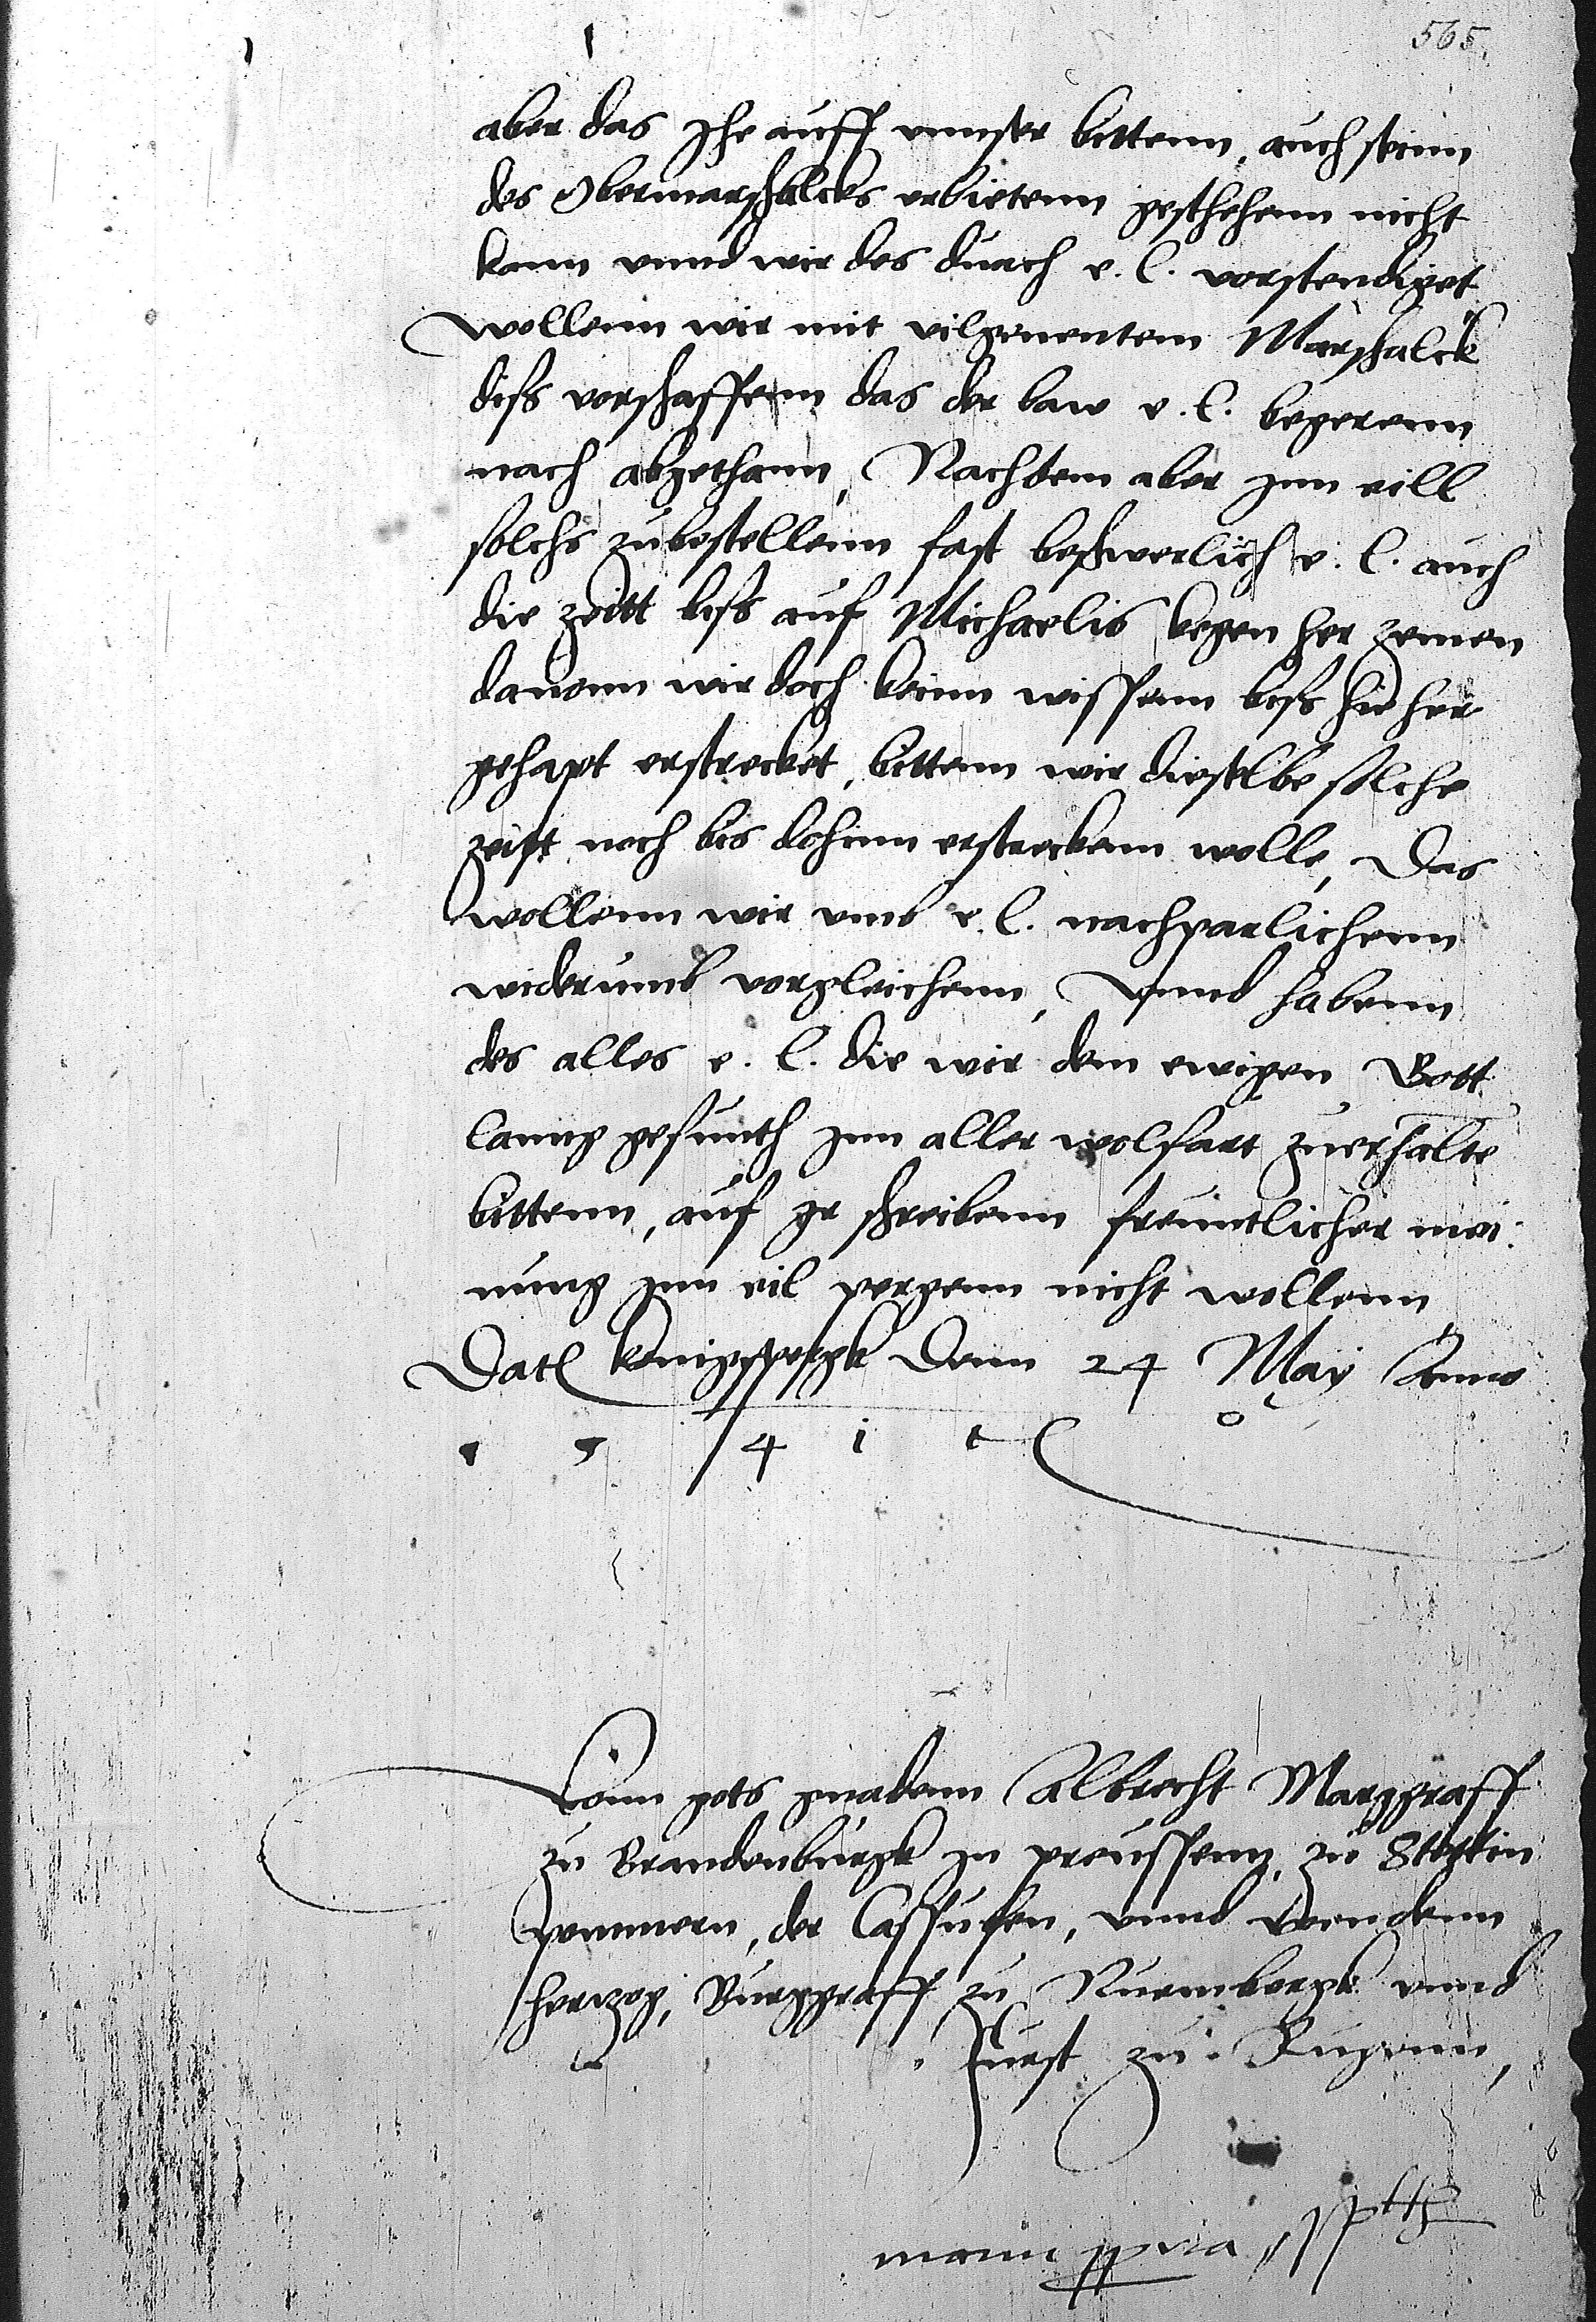 565.
aber das Jhe auff vnnser bittenn, auch seinn
des Obermarschalcks erbietenn geschehenn nicht
kann vnnd wir des durch e. l. vorstendiget
wollenn wir mit vilgenentem Marschalck
diss vorschaffenn das der baw e. l. begerenn
nach abgethann, Nachdem aber jnn eill
solchs zubestellenn fast beschwerlich e. l. auch
die zeitt biss auf Michaelis kegen her
dauonn wir doch keinn wissenn biss hieher
gehapt erstrecket, bittenn wir dieselbe solche
zeitt noch bis dohinn erstreckenn wolle, Das
wollenn wir vmb e. l. nachparlichenn
widerumb vorgleichenn, Vnnd habenn
des alles e. l. die wir dem ewigen Gott
lanng gesunth jnn aller wolfart zuerhalte
bittenn, auf jr schreibenn freuntlicher mei:
nung jnn eil pergenn nicht wollenn
Datl konigspergk Denn 24 May Anno
4 1
Vonn gots gnadenn Albrecht Marggraff
zu Brandenburgk jn preussenn, zu Stettin
pommern, der Cassuben, vnnd Wendenn
hertzog, Burggraff zu Nurmbergk vnnd
Furst zu Rugenn,
manu ppria sspt